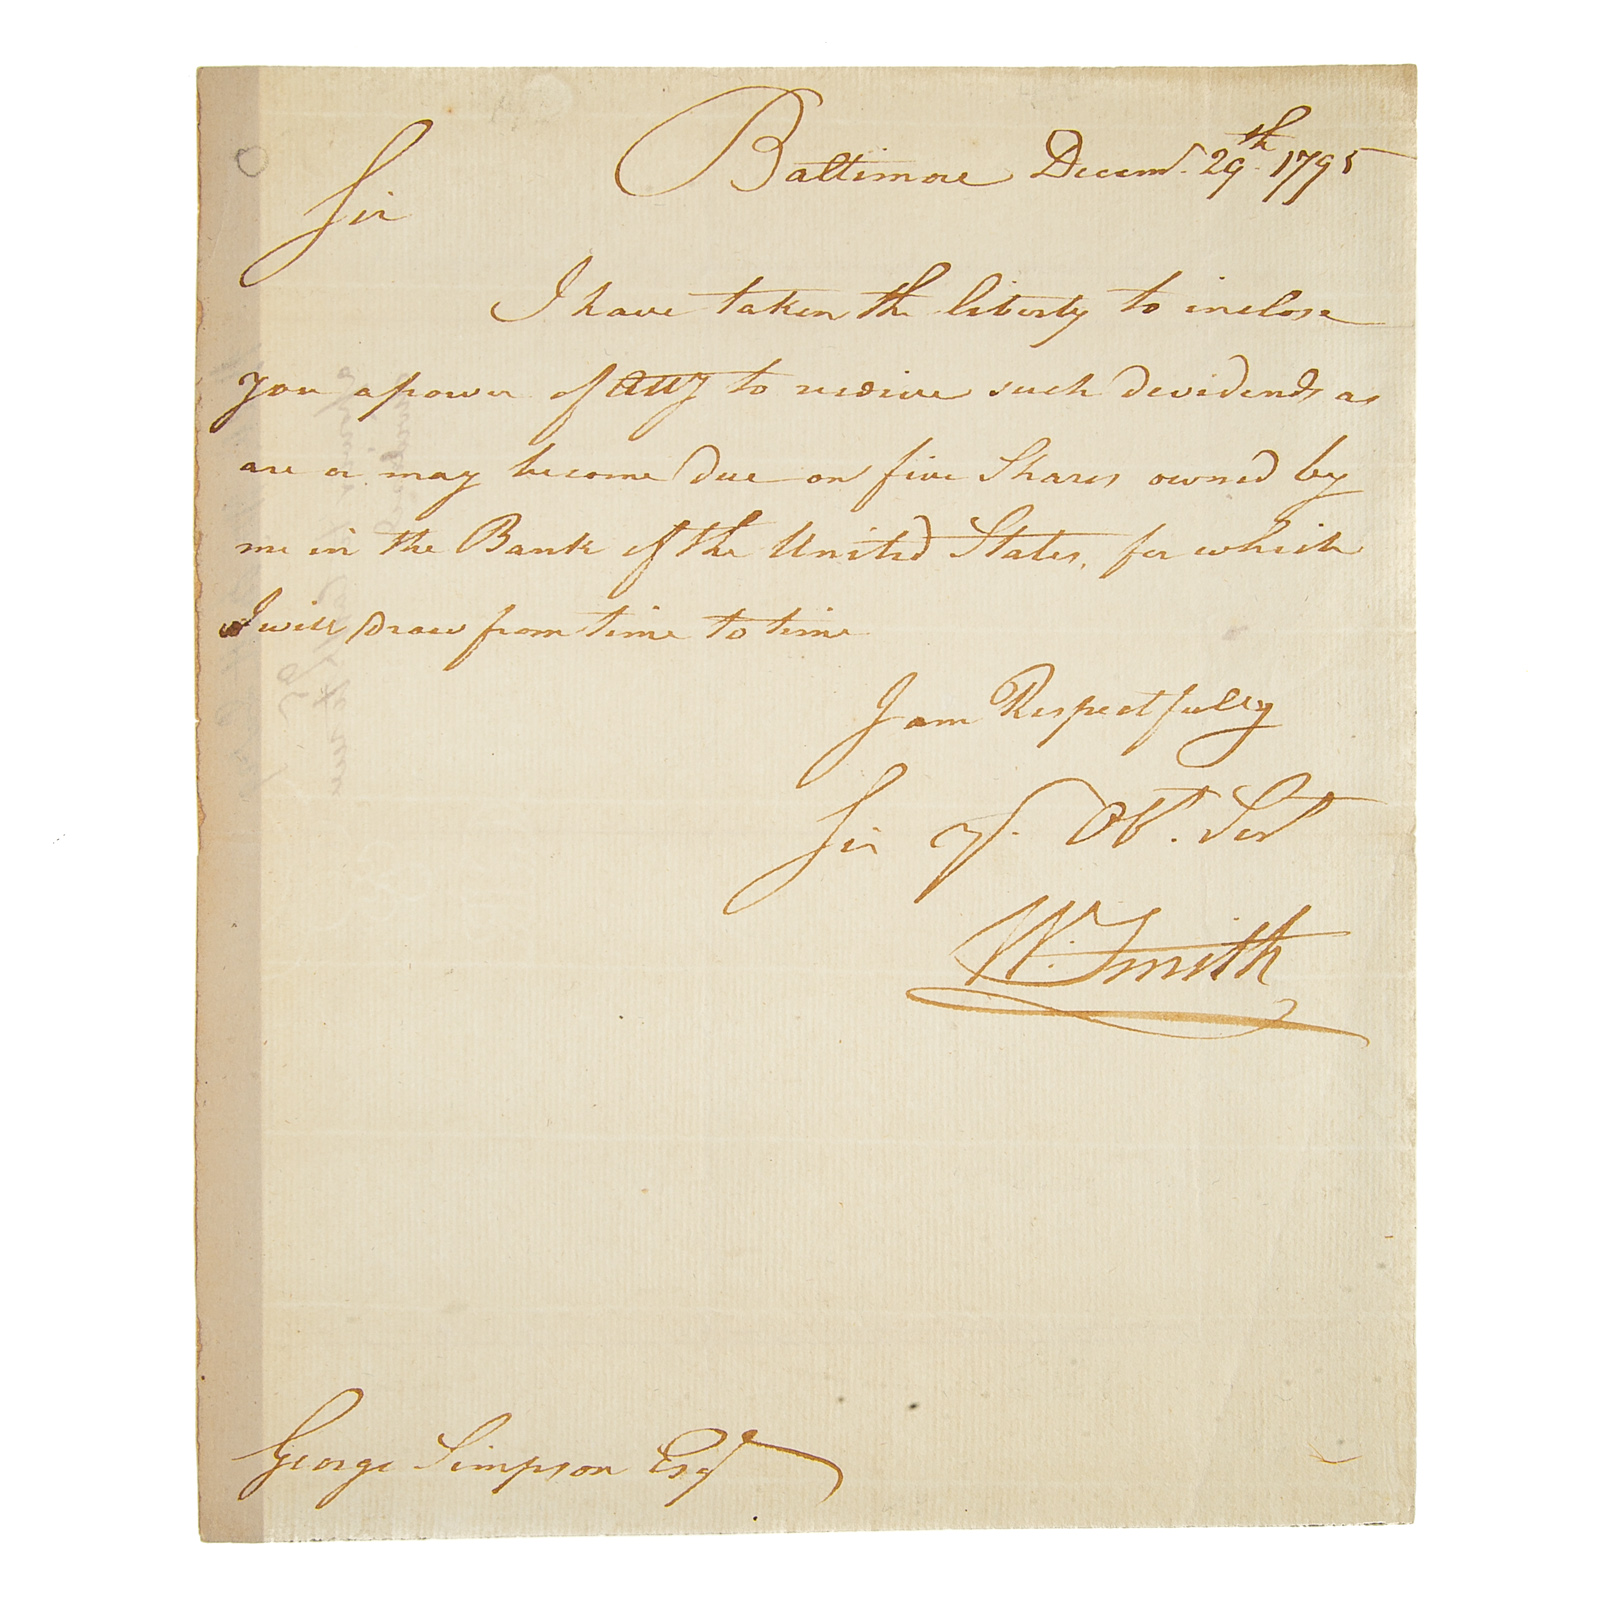 Baltimore Decemr. 29th. 1795
Sir
I have taken the liberty to inclose
you a power of atty to receive such devidends as
are or may become due on five Shares owned by
me in the Bank of the United States, for which
I will draw from time to time
I am Respectfully
Sir yr. Obt. Sert
W. Smith
George Simpson Esqr